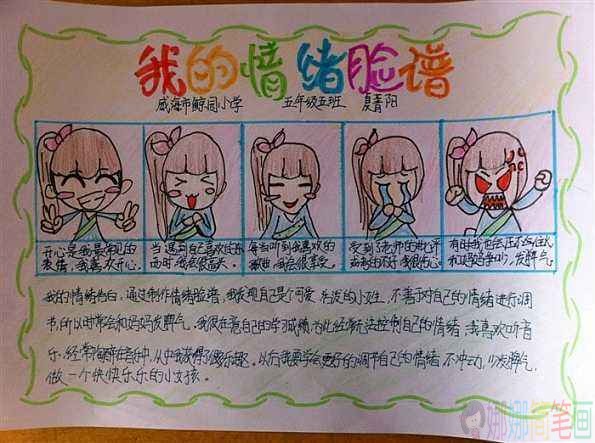 我的情绪脸谱
威海市鲸园小学 五年级五班 夏青阳
开心是我最常见的
表情,我喜欢开心。
当遇到自己喜欢的东
西时,我会很高兴。
每当听到我喜欢的
歌曲,我会很享受。
受到老师的批评
或考的不好,我很伤心。
有时我也会
和妈妈争吵,发脾气。
我的情绪独白,通过制作情绪脸谱,我发现自己是个可爱、活泼的小女生,不善于对自己的情绪进行调
节,所以时常会和妈妈发脾气,我很在意自己的学习成绩,因此经常无法控制自己的情绪,我喜欢听音
乐,经常陶醉在音乐中,从中我发得了娱乐趣。以后我要学会更好的调节自己的情绪,不冲动,少发脾气,
做一个快快乐乐的小女孩。
娜娜简笔画